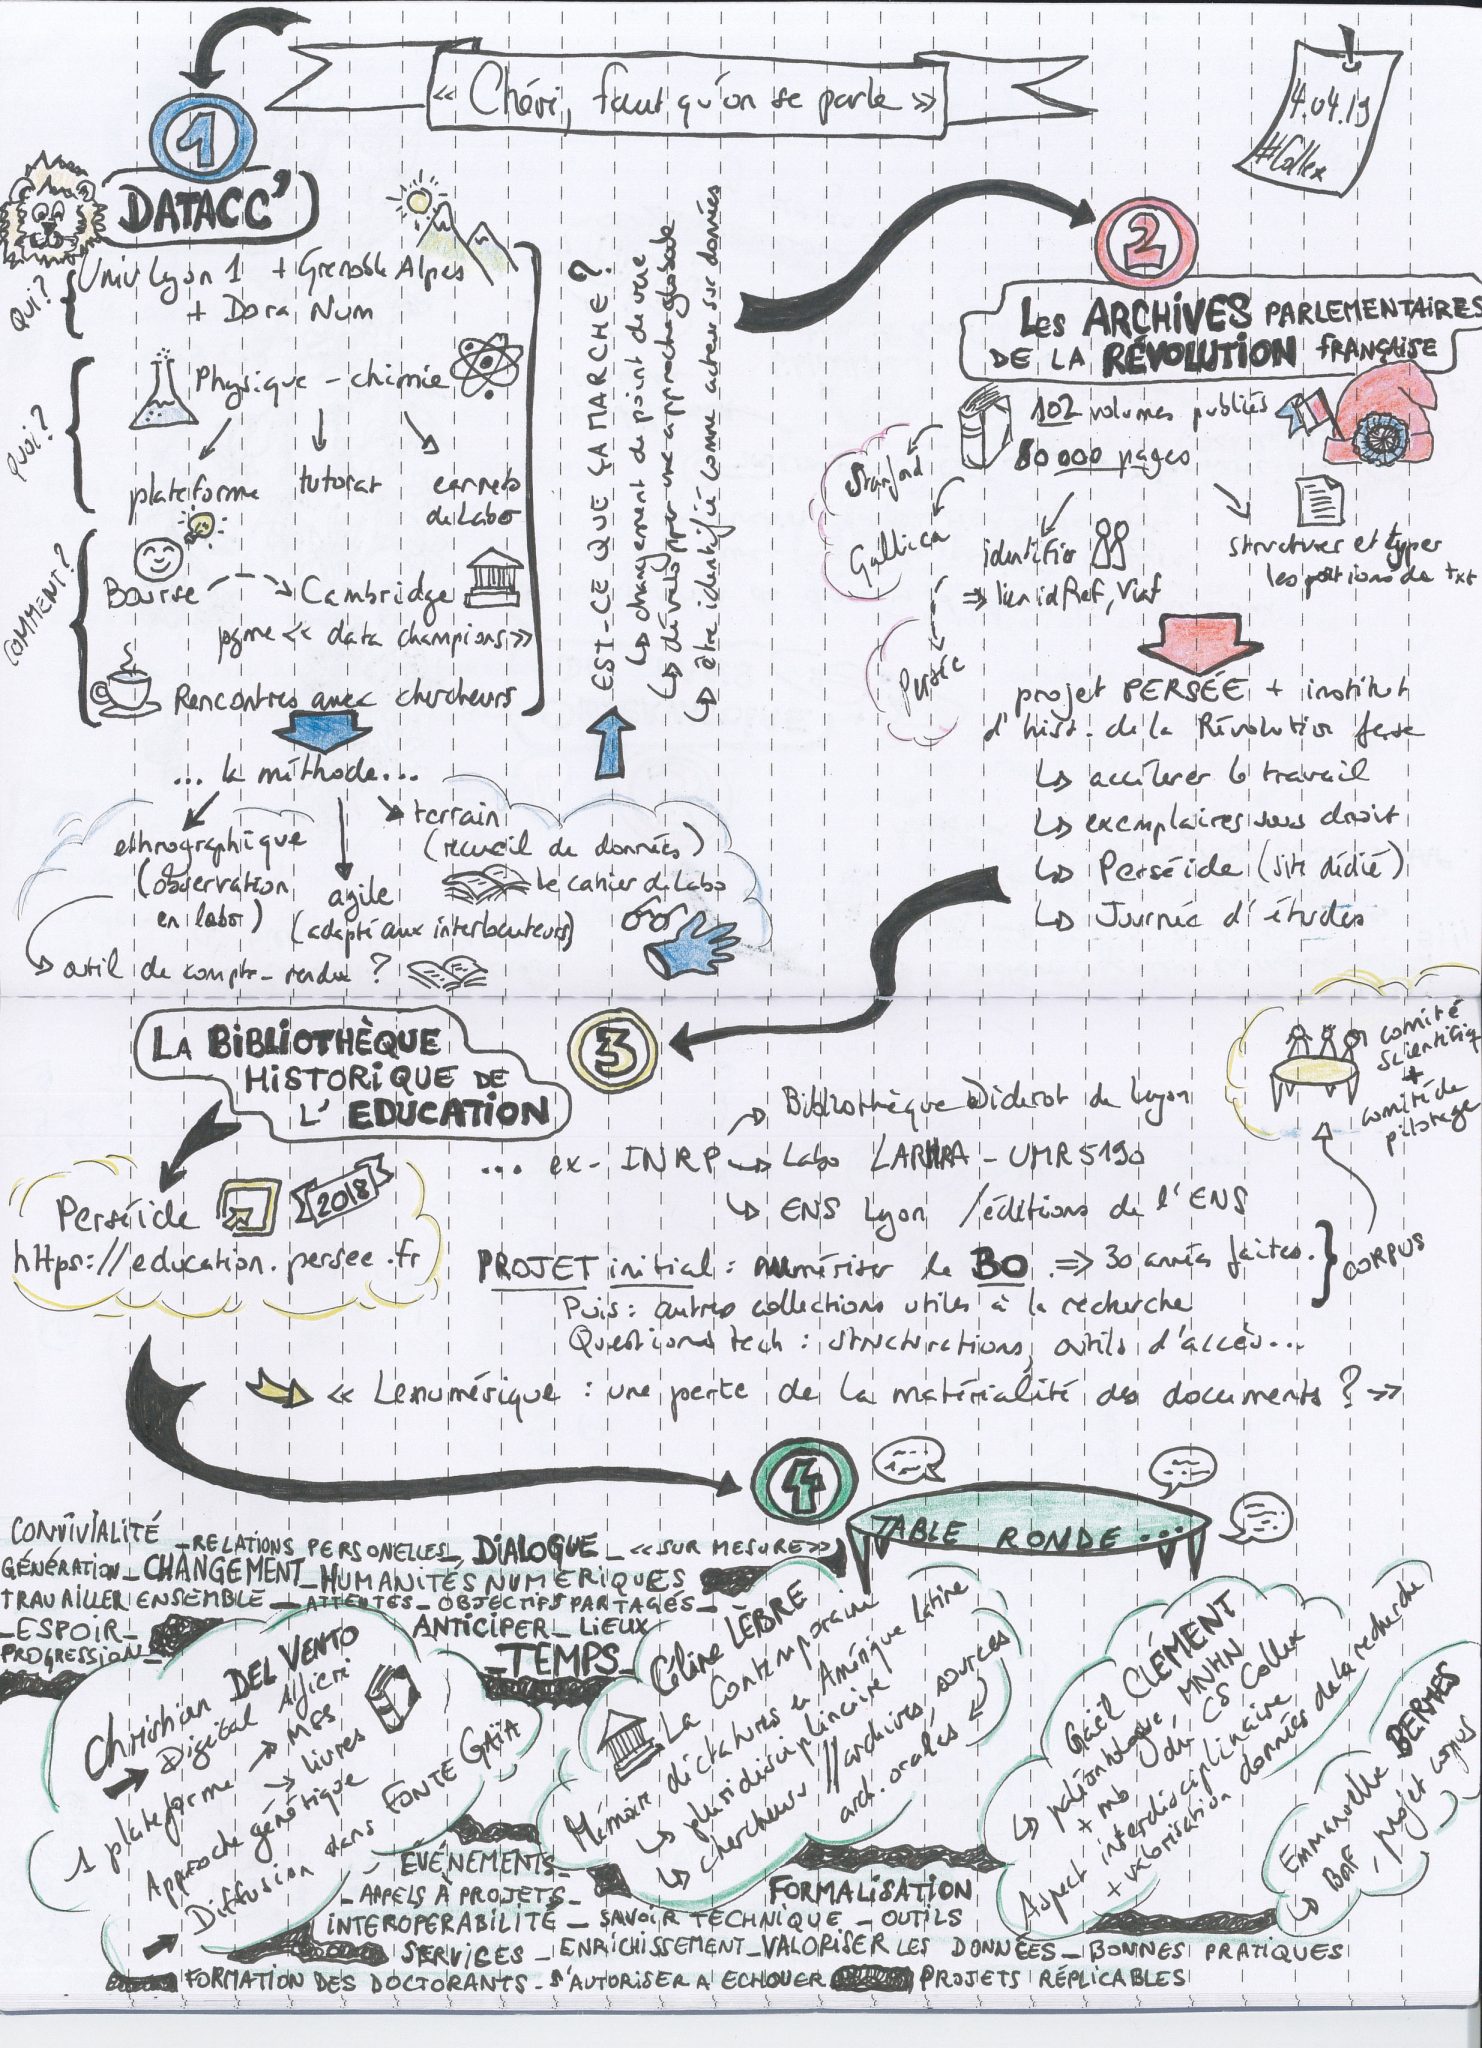 « Chéri, faut qu'on se parle »
4.04.19
#Collex
1
DATACC'
Qui?
Univ Lyon 1 + Grenoble Alpes
+ Dora Num
Quoi?
Physique - chimie
plateforme
tutorat
carnets
de labo
COMMENT?
Bourse
Cambridge
pgme « data champions »
Rencontres avec chercheurs
... la méthode...
ethnographique
(observation
en labo)
agile
(adapté aux interlocuteurs)
terrain
(recueil de données)
le cahier de labo
outil de compte-rendu ?
EST-CE QUE ÇA MARCHE ?
↳ changement de point de vue
↳ développer une approche globale
↳ être identifié comme acteur sur données
2
Les ARCHIVES PARLEMENTAIRES
DE LA RÉVOLUTION FRANÇAISE
102 volumes publiés
80 000 pages
Stanford
Gallica
Persée
identifier
⇒ lien idRef, Viaf
structurer et typer
les portions de txt
projet PERSÉE + institut
d'hist. de la Révolution fçse
↳ accélérer le travail
↳ exemplaires sous droit
↳ Perséide (site dédié)
↳ Journée d'études
3
LA BIBLIOTHÈQUE
HISTORIQUE DE
L'EDUCATION
Perséide
2018
https://education.persee.fr
... ex-INRP
Bibliothèque Diderot de Lyon
Labo LARHRA - UMR 5190
↳ ENS Lyon / éditions de l'ENS
comité
scientifiq
+
comité de
pilotage
PROJET initial : numériser le BO ⇒ 30 années faites.
Puis : autres collections utiles à la recherche
CORPUS
Questions tech : structurations, outils d'accès...
« Le numérique : une perte de la matérialité des documents ? »
4
TABLE RONDE ...
CONVIVIALITÉ _ RELATIONS PERSONELLES _ DIALOGUE _ « SUR MESURE »
GÉNÉRATION _ CHANGEMENT _ HUMANITÉS NUMERIQUES
TRAVAILLER ENSEMBLE _ ATTENTES _ OBJECTIFS PARTAGÉS _
_ ESPOIR _
ANTICIPER _ LIEUX
PROGRESSION _
_ TEMPS _
Christian DEL VENTO
Digital Alfieri
1 plateforme → MSS
→ livres
Approche génétique
Diffusion dans FONTE GAÏA
Céline LEBRE
La Contemporaine
Mémoire dictatures en Amérique latine
↳ plusidisciplinaire
↳ chercheurs // archives, sources
arch. orales
Gaël CLÉMENT
↳ paléontologue, MNHN
+ mb du CS Collex
Aspect interdisciplinaire
+ valorisation données de la recherche
Emmanuelle BERMES
↳ BnF, projet corpus
ÉVÉNEMENTS _
_ APPELS À PROJETS _
FORMALISATION
INTEROPERABILITÉ _ SAVOIR TECHNIQUE _ OUTILS
SERVICES _ ENRICHISSEMENT _ VALORISER LES DONNÉES _ BONNES PRATIQUES
FORMATION DES DOCTORANTS _ S'AUTORISER A ECHOUER
PROJETS RÉPLICABLES